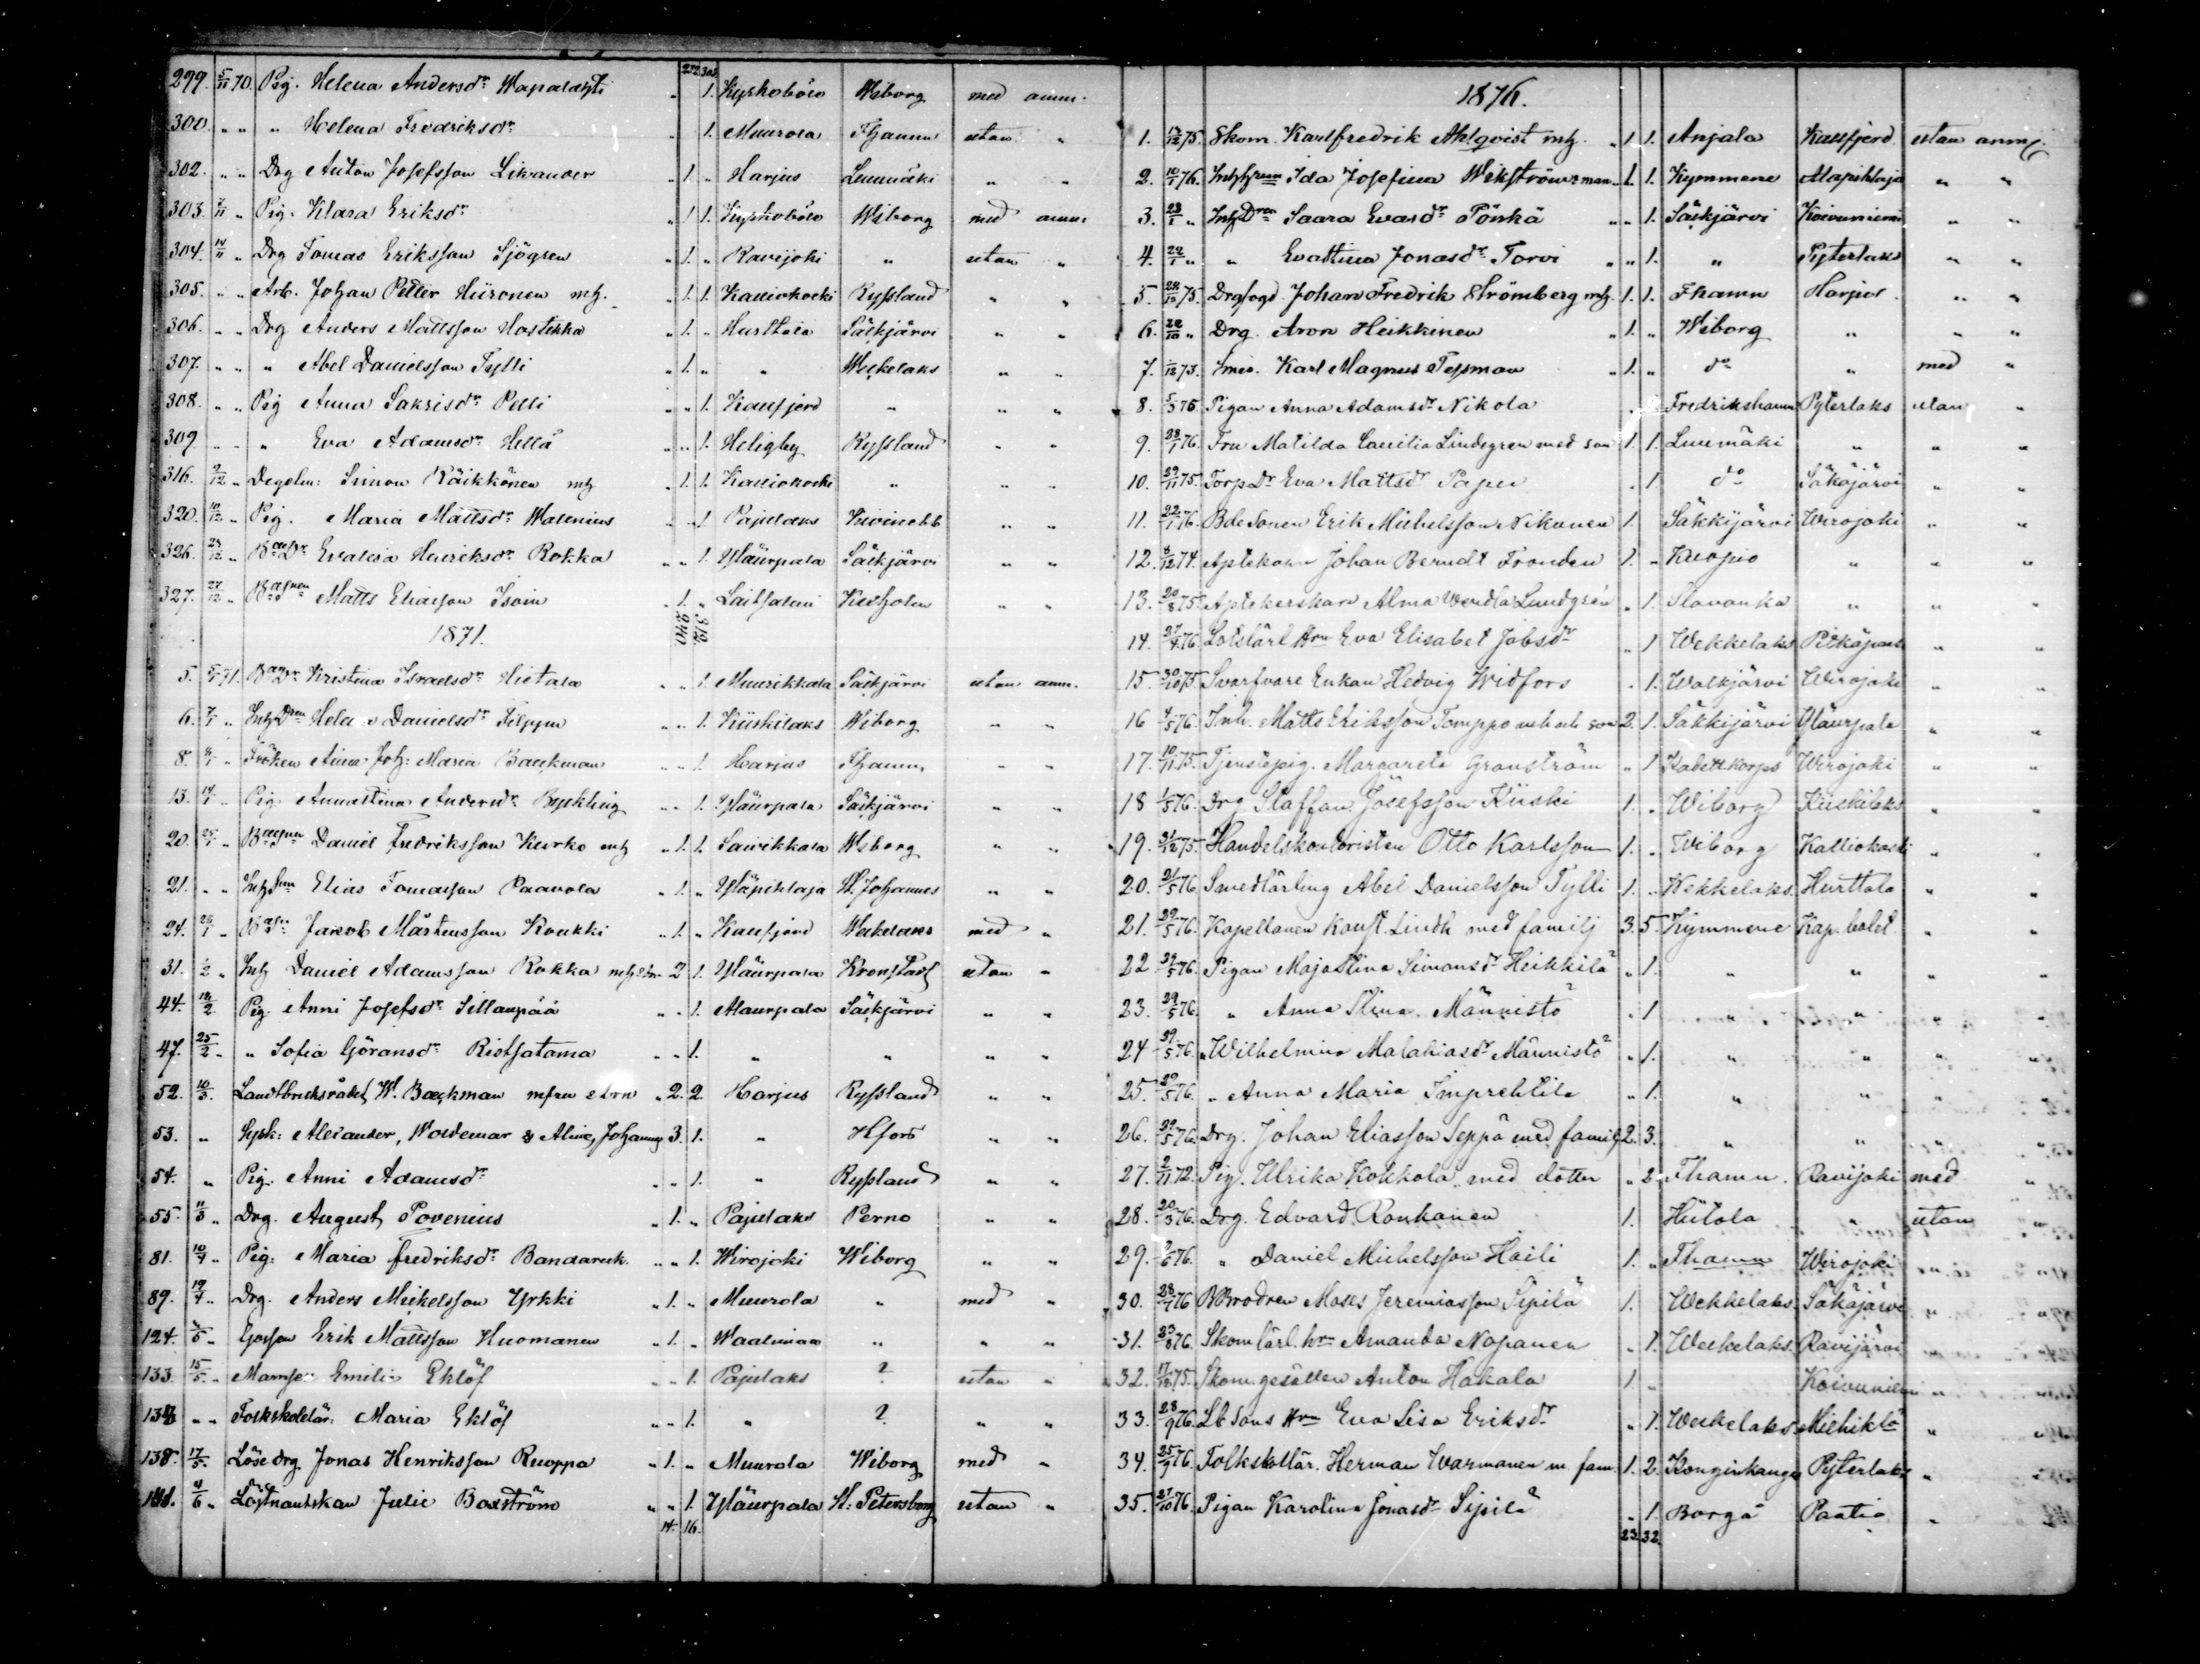 299. 5/11 70. Pig. Helena Andersdr Wapalahti " 1. Kyrkoböle Wiborg med anm.
300. " " " Helena Fredriksdr " 1. Muurola Fhamn utan "
302. " " Drg Anton Josefsson Likander " 1. " Harjus Luumäki " "
303. 7/11 " Pig. Klara Eriksdr " 1. Kyrkoböle Wiborg med anm.
304. 14/11 " Drg Tomas Eriksson Sjögren " 1. " Ravijoki " utan "
305. " " Arb. Johan Petter Hiironen mh. " 1. 1. Kalliokoski Ryssland " "
306. " " Drg Anders Mattsson Hostikka " 1. " Hurttala Säkjärvi " "
307. " " " Abel Danielsson Tylli " 1. " " Wekelaks " "
308. " " Pig Anna Sakrisdr Pelli " " 1. Kausfjerd " " "
309. " " " Eva Adamsdr Hellä " " 1. Heligby Ryssland " "
316. 9/12 " Degelm: Simon Räikkönen mh " 1. 1. Kalliokoski " " "
320. 10/12 " Pig. Maria Mattsdr Walenius " " 1 Pajulaks " "
326. 24/12 " Evalisa Henriksdr Rokka " " 1. Yläurpala Säkjärvi " "
327. 27/12 " Matts Eliasson Isoin " 1. " Laitsalmi Kexholm " "
1871.
240 312
5. 5/1 71. Kristina Israelsdr Hietala " " 1. Muurikkala Säkjärvi utan anm.
6. 7/1 " Inh Drn Helena Danielsdr Filppu " " 1. Kiiskilaks Wiborg " "
8. " Fröken Aina Joh: Maria Backman " " 1. Harjus Fhamn " "
13. 14/1 " Pig. Annastina Andersdr Byckling " " 1. Yläurpala Säkjärvi " "
20. 25/1 " Daniel Fredriksson Kurko mh " 1. 1. Saivikkala Wiborg " "
21. " " Inh Sn Elias Tomasson Paavola " 1. " Yläpihlaja St. Johannes " "
24. 28/1 " Jakob Mårtensson Koukki " 1. " Kausfjerd Wekelaks med "
31. 1/2 " Inh Daniel Adamsson Rokka 2 1. Yläurpala Kronstadt utan "
44. 18/2. Pig. Anni Josefsdr Sillanpää " " 1. Alaurpala Säkjärvi " "
47. 25/2 " " Sofia Göransdr Ristsatama " " 1. " " " "
52. 10/3. Landtbruksrådet W. Backman mfru o barn " 2. 2. Harjus Ryssland " "
53. " Sysk: Alexander, Woldemar & Alina Johannes 3. 1. " Hfors " "
54. " Pig. Anni Adamsdr " " 1. " Ryssland " "
55. 11/3 " Drg. August Povenius " 1. " Pajulaks Perno " "
81. 10/4 " Pig: Maria Fredriksdr Bandaruk. " " 1. Wirojoki Wiborg " "
89. 19/4 " Drg. Anders Mickelsson Yrkki " 1. " Muurola " med "
124. 4/5 " Erik Mattsson Huomanen " 1. " Waalimaa " " "
133. 15/5 " Mamsel Emilie Eklöf " " 1. Pajulaks ? utan "
134 " " Folkskolelär: Maria Eklöf " " 1. " ? " "
138. 17/5 " Löse drg Jonas Henriksson Ruoppa " 1. " Muurola Wiborg med "
141. 4/6 " Löjtnantskan Julie Boxström " " 1. Yläurpala St: Petersborg utan "
14. 16.
1876.
1. 13/12 75. Skom. Karl Fredrik Ahlqvist mh. " 1. 1. Anjala Kausfjerd utan anm.
2. 10/1 76. Ida Josefina Wikström m man " 1. 1. Kymmene Alapihlaja " "
3. 28/1 " Inh Drn Saara Evasdr Pönkä " " 1. Säkjärvi Koivuniemi " "
4. 22/1 " " Evastina Jonasdr Torvi " " 1. " Pyterlaks " "
5. 22/10 75. Drgfogd Johan Fredrik Strömberg mh 1. 1. Fhamn Harjus. " "
6. 22/10 " Drg. Aron Heikkinen " 1. " Wiborg " " "
7. 12 73. Smes. Karl Magnus Tessman " 1. " do " med "
8. 5/3 76. Pigan Anna Adamsdr Nikola Fredrikshamn Pyterlaks utan "
9. 28/1 76. Fru Matilda Cecilia Lindegren med son 1. 1. Luumäki " " "
10. 29/11 75. Torp Dr Eva Mattsdr Papu " 1 do Säkäjärvi " "
11. 22/1 76. Bde Sonen Erik Michelsson Nikunen 1. Säkkijärvi Wirojoki " "
12. 6/12 74. Aptekarn Johan Berndt Fronden 1. " Kuopio " " "
13. 20/8 75. Aptekerskan Alma Wendla Lundgrén " 1. Slavanka " " "
14. 27/4 76. Lotslärl. Hrn Eva Elisabet Jobsdr " 1 Wekkelaks Pitkäpaas " "
15. 30/10 75. Svarfvare Enkan Hedvig Widfors " 1. Walkjärvi Wirojoki " "
16 4/5 76. Inh. Matts Eriksson Tomppo m h och son 2. 1. Säkkijärvi Yläurpala " "
17. 10/11 75. Tjenstepig. Margareta Granström " 1 Kadett. Korps Wirojoki " "
18 1/5 76. Drg Staffan Josefsson Kiiski 1. " Wiborg Kiiskilaks " "
19. 31/12 75. Handelskontoristen Otto Karlsson 1. " Wiborg Kalliokoski " "
20. 21/5 76. Smedlärling Abel Danielsson Tylli 1. " Wekkelaks. Hurttala " "
21. 29/5 76. Kapellanen Konst. Lindh med familj 3. 5. Kymmene Kap. bolet. " "
22 29/5 76. Pigan Maja Stina Simonsdr Heikkilä " 1. " " " "
23. 29/5 76. " Anna Stina Männistö " 1 " " " "
24 29/5 76. " Wilhelmina Malakiasdr Männistö " 1. " " " "
25. 29/5 76. " Anna Maria Imprehtile " 1. " " " "
26. 29/5 76. Drg. Johan Eliasson Seppä med familj 2. 3. " " " "
27. 2/11 72. Pig. Ulrika Kokkola med dotter " 2 Fhamn. Ravijoki med "
28. 20/3 76. Drg. Edvard Ronkanen 1. Hiitola " utan "
29. 9/6 76. " Daniel Michelsson Haili 1. " Fhamn Wirojoki " "
30. 28/7 76 BBrodren Moses Jeremiasson Sipilä 1. Wekkelaks Säkäjärvi " "
31. 23/8 76. Skom lärl. hrn Amanda Nopanen " 1. Weckelaks. Ravijärvi " "
32. 17/12 75. Skom. gesällen Anton Hakala 1. " Koivuniemi "
33. 28/9 76. Lb Sons Hrn Eva Lisa Eriksdr " 1. Weckelaks Miehiklä "
34. 25/9 76. Folkskollär. Herman Warmanen m. fam. 1. 2. Konginkangas Pyterlaks "
35. 27/10 76. Pigan Karolina Jonasdr Sipilä " 1. Borgå Paatio "
23. 32.